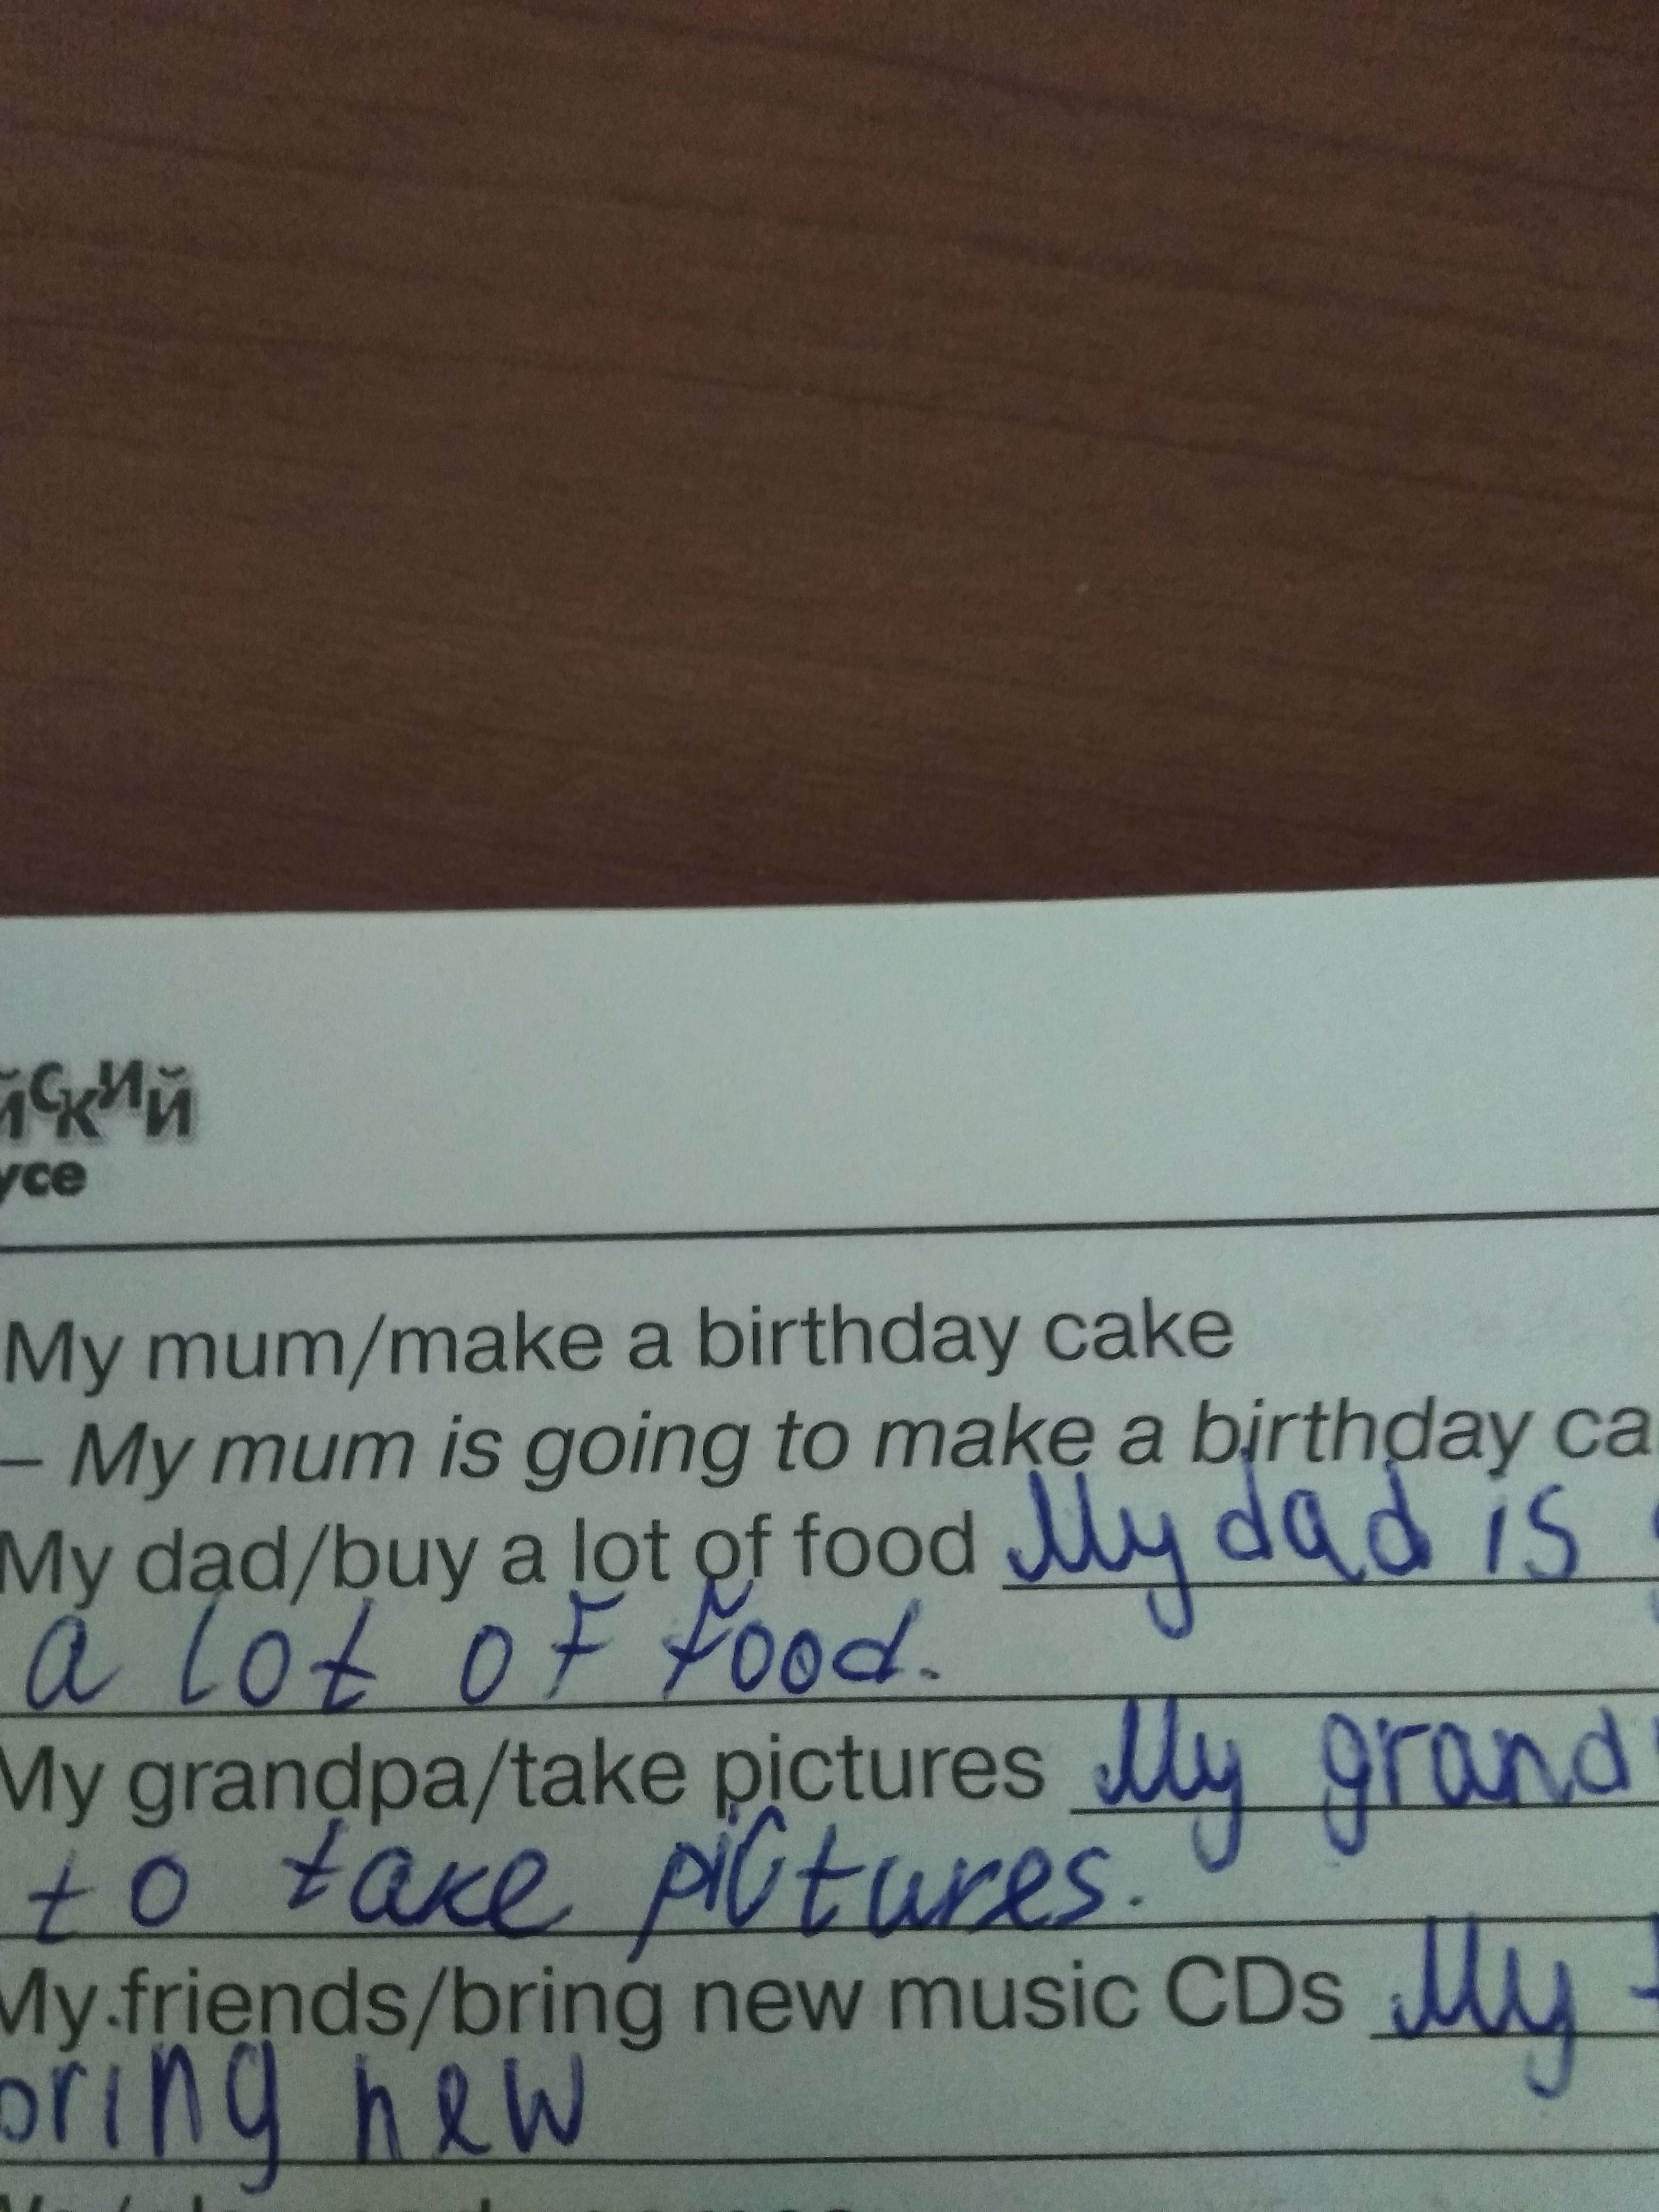 йский
усе
My mum/make a birthday cake
– My mum is going to make a birthday ca
My dad/buy a lot of food My dad is
a lot of food.
My grandpa/take pictures My grand
to take pictures.
My friends/bring new music CDs My
bring new